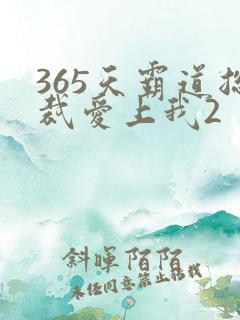 365天霸道总
裁爱上我2
斜晖陌陌
未经同意禁止转载